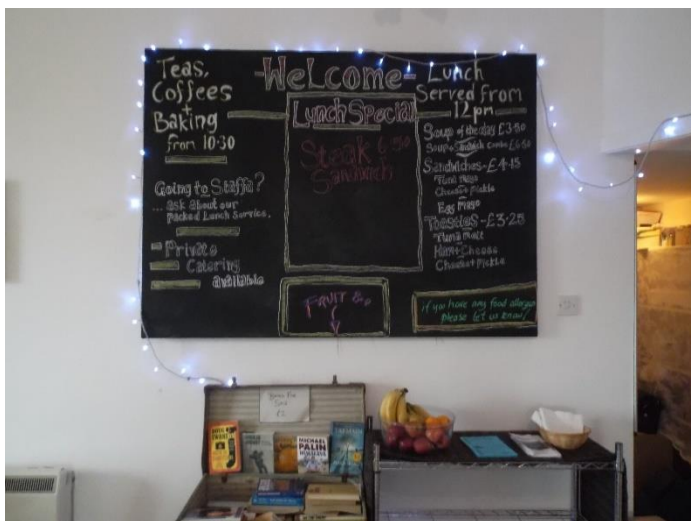 Teas,
Coffees
+
Baking
from 10·30
Going to Staffa?
... ask about our
packed Lunch Service.
Private
Catering
available
-WeLcome-
Lunch Special
Steak 6.50
Sandwich
FRUIT 80p
Lunch
Served from
12pm
Soup of the day £3·50
Soup + Sandwich Combo £6.50
Sandwiches-£4·15
Tuna Mayo
Cheese+pickle
Egg Mayo
Toasties-£3.25
Tuna Melt
Ham+Cheese
Cheese+pickle
if you have any food allergies
please let us know!
MICHAEL
PALIN